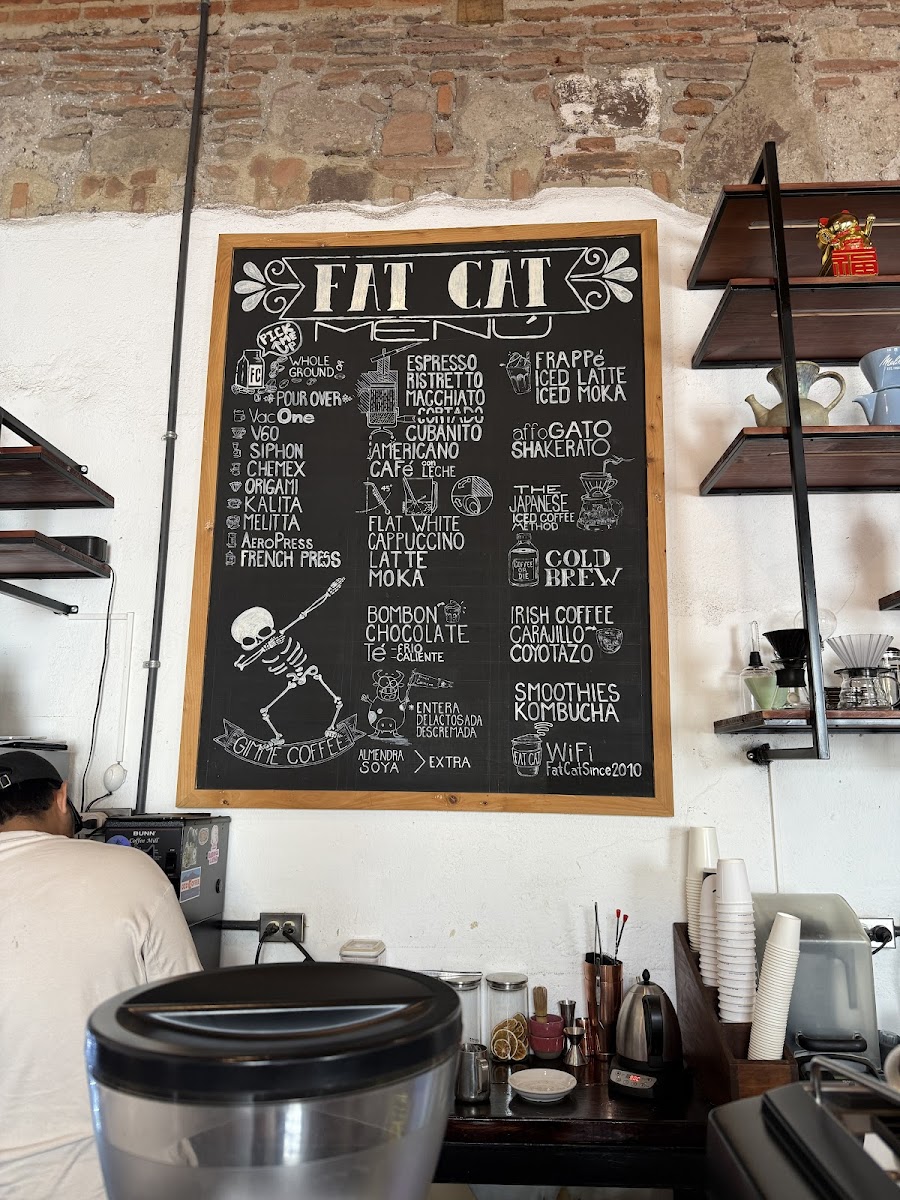 FAT CAT
MENÚ
PICK
ME
UP
FC
WHOLE
GROUND
POUR OVER
VacOne
V60
SIPHON
CHEMEX
ORIGAMI
KALITA
MELITTA
AEROPRESS
FRENCH PRESS
GIMME COFFEE
ESPRESSO
RISTRETTO
MACCHIATO
CORTADO
CUBANITO
AMERICANO
CAFé con LECHE
45°
FLAT WHITE
CAPPUCCINO
LATTE
MOKA
BOMBON
CHOCOLATE
Té -FRIO
-CALIENTE
ENTERA
DELACTOSADA
DESCREMADA
ALMENDRA
SOYA > EXTRA
FRAPPé
ICED LATTE
ICED MOKA
affoGATO
SHAKERATO
THE
JAPANESE
ICED COFFEE
METHOD
COFFEE
OR
DIE
COLD
BREW
IRISH COFFEE
CARAJILLO
COYOTAZO
SMOOTHIES
KOMBUCHA
FAT CAT
WiFi
FatCatSince2010
福
BUNN
Coffee Mill